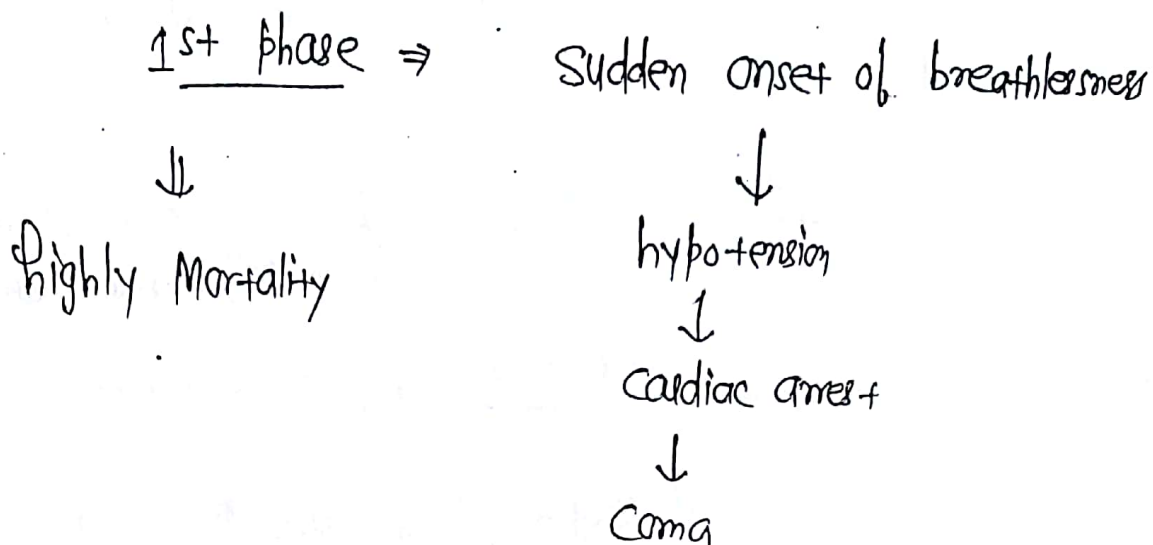 1st phase ⇒ Sudden onset of breathlessness
⇓ ↓
highly Mortality hypotension
↓
Cardiac arrest
↓
Coma